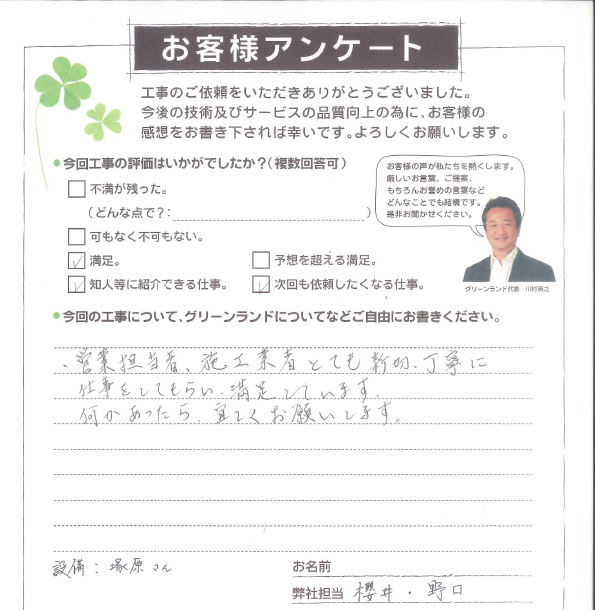 お客様アンケート
工事のご依頼をいただきありがとうございました。
今後の技術及びサービスの品質向上の為に、お客様の
感想をお書き下されば幸いです。よろしくお願いします。
●今回工事の評価はいかがでしたか?(複数回答可)
不満が残った。
(どんな点で?: )
可もなく不可もない。
満足。
予想を超える満足。
知人等に紹介できる仕事。
次回も依頼したくなる仕事。
お客様の声が私たちを熱くします。
厳しいお言葉、ご提案、
もちろんお誉めの言葉など
どんなことでも結構です。
是非お聞かせください。
グリーンランド代表 川村英之
●今回の工事について、グリーンランドについてなどご自由にお書きください。
、営業担当者、施工業者とても親切、丁寧に
仕事をしてもらい、満足しています。
何かあったら、宜しくお願いします。
設備:塚原さん
お名前
弊社担当 櫻井・野口